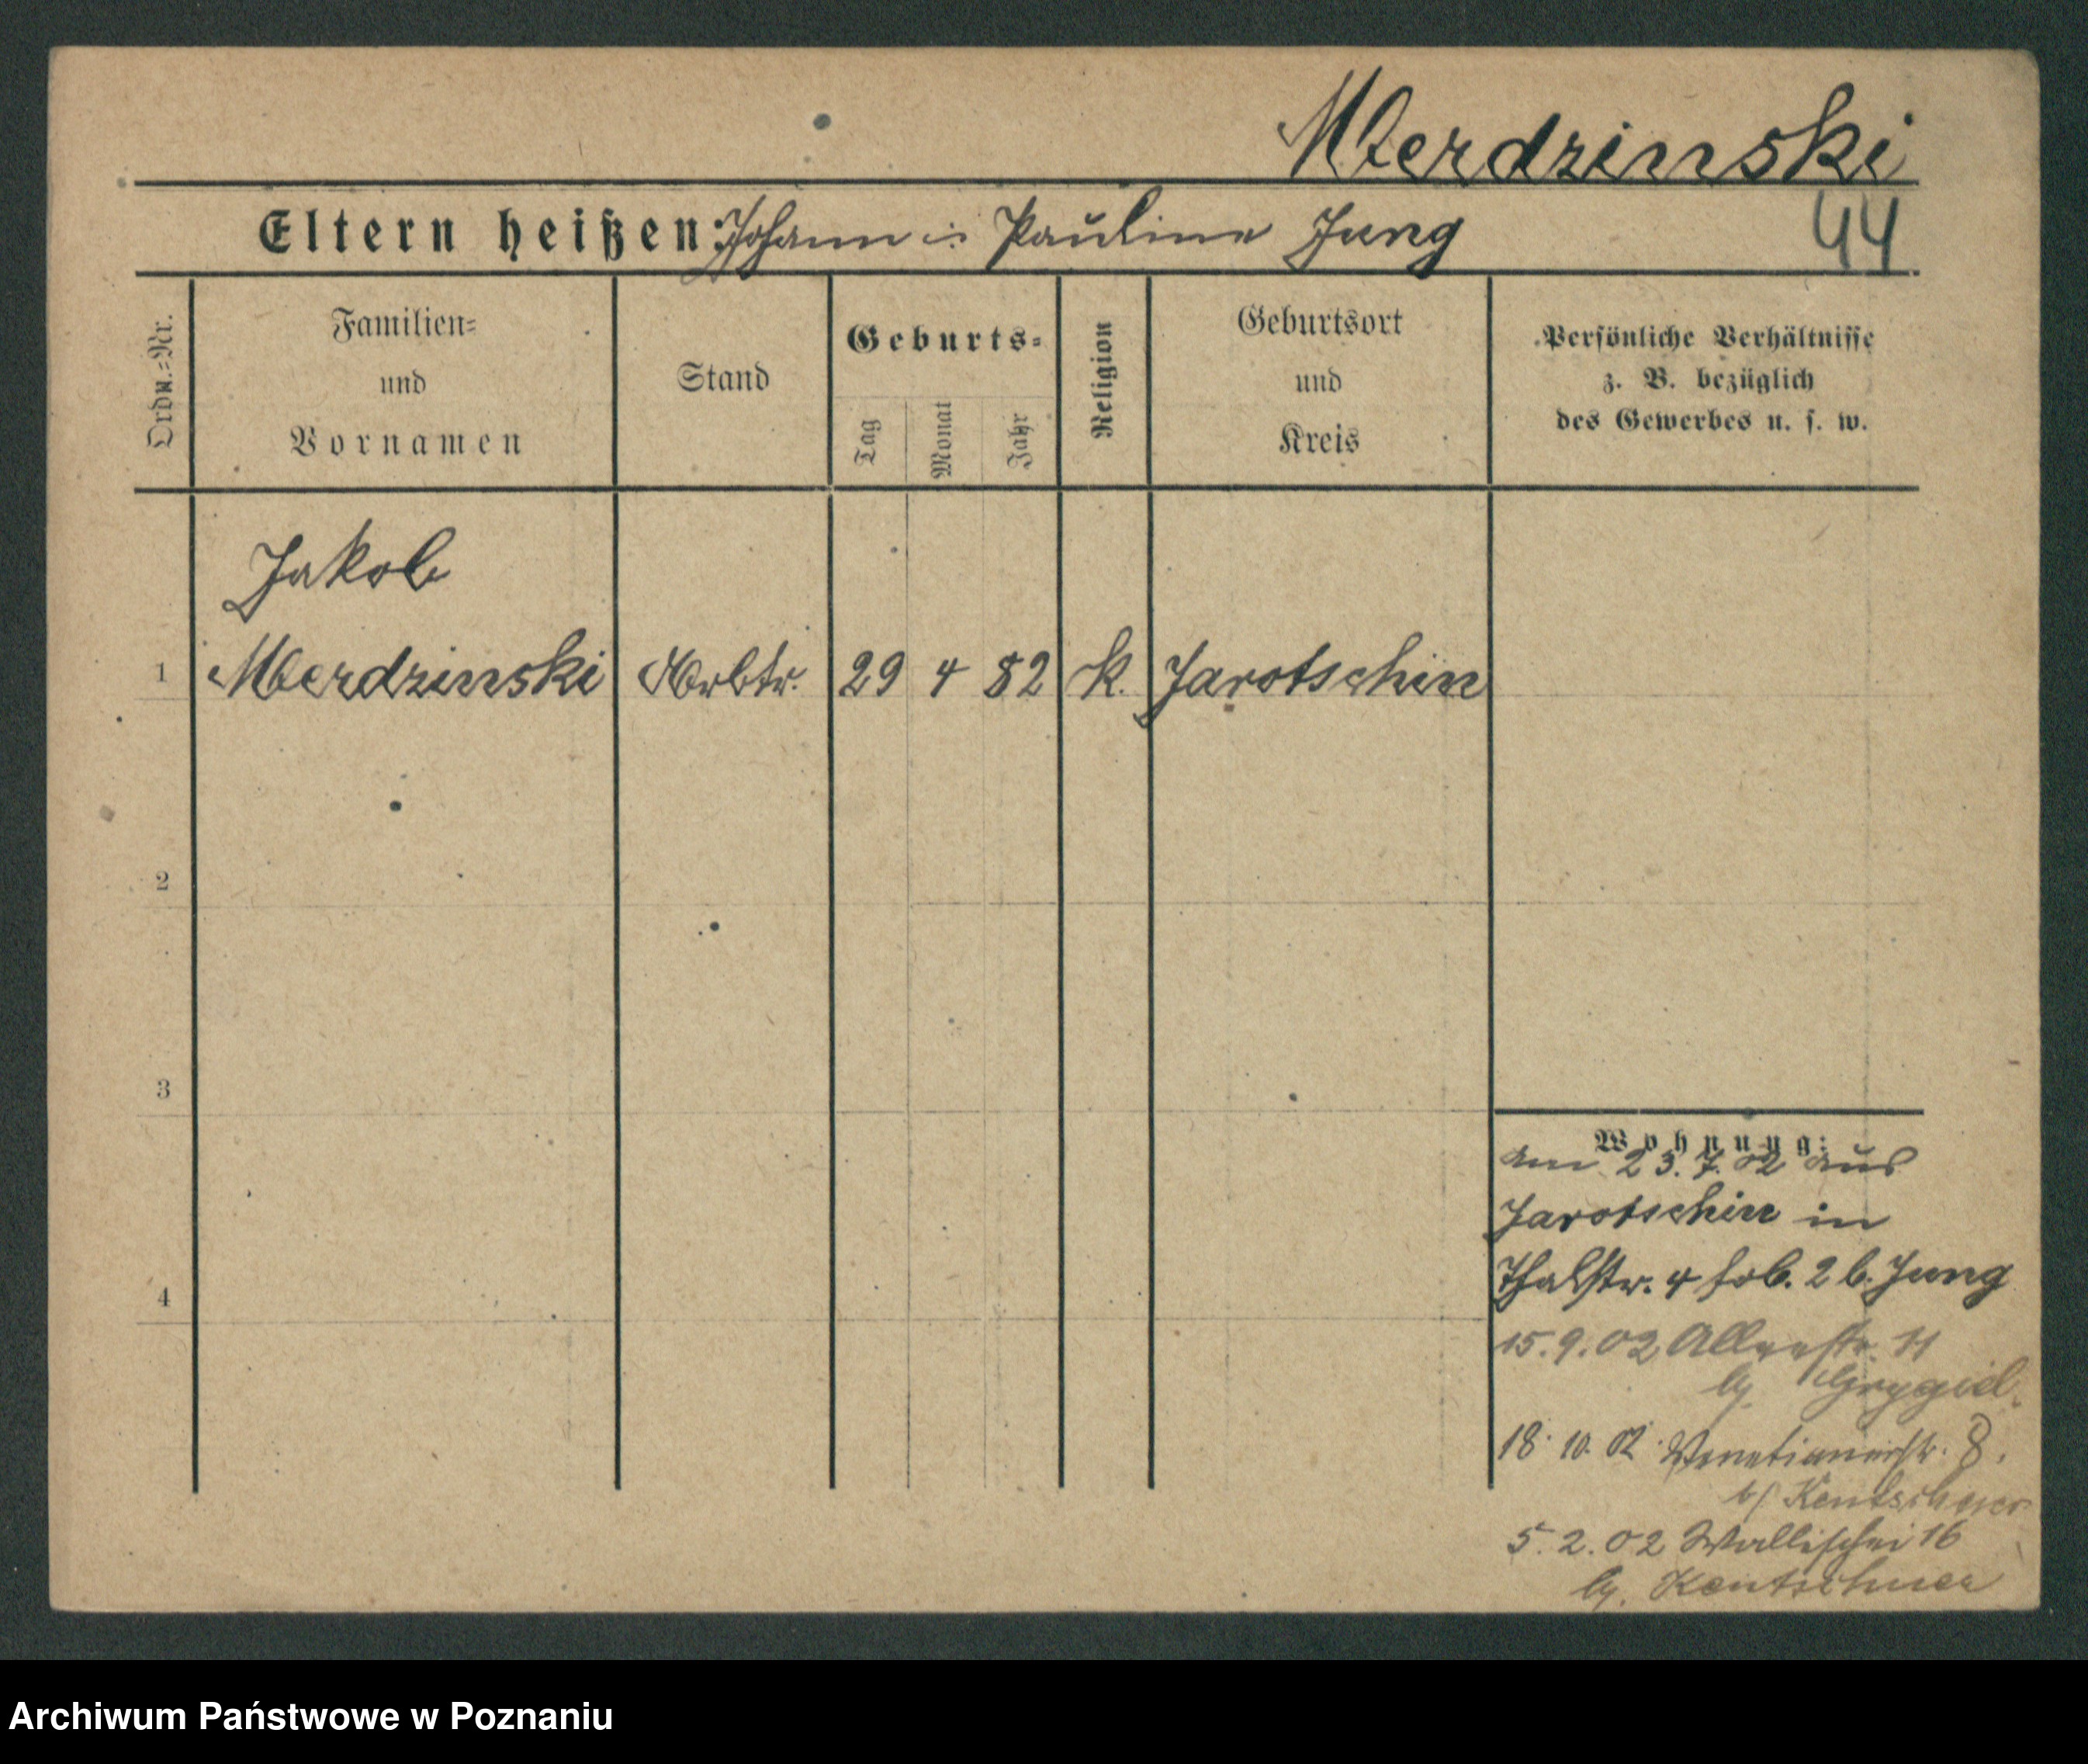 Mierdzinski
Eltern heißen: Johann u. Pauline Jung
44
Ordn.-Nr.
Familien-
und
Vornamen
Stand
Geburts-
Tag
Monat
Jahr
Religion
Geburtsort
und
Kreis
Persönliche Verhältnisse
z. B. bezüglich
des Gewerbes u. s. w.
Jakob
1 Mierdzinski Arbtr. 29 4 82 k. Jarotschin
2
3
4
Wohnung:
am 23.7.02 aus
Jarotschin in
Thalstr. 4 2 b. Jung
15.9.02 Alleestr. 11
Grygiel
18. 10. 02. Venetianerstr. 8.
5.2.02 Wallischei 16
Kentschner
Archiwum Państwowe w Poznaniu